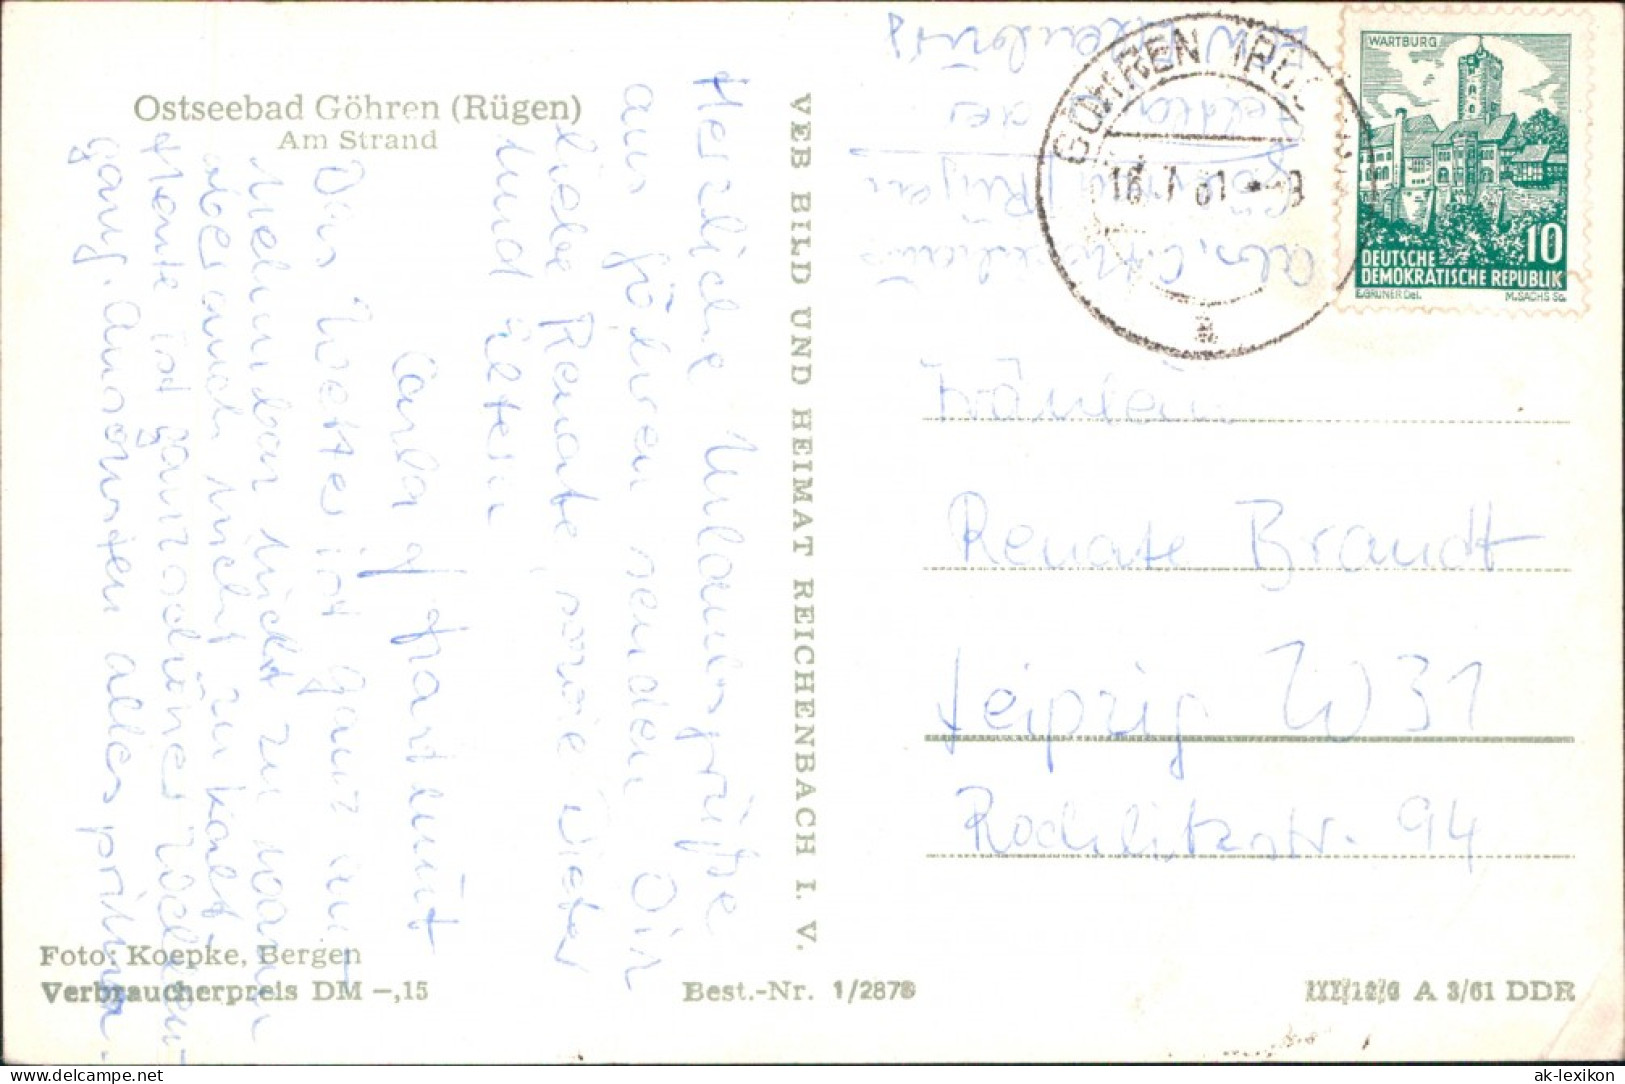 Ostseebad Göhren (Rügen)
Am Strand
Herzliche Urlaubsgrüße
aus Göhren senden Dir
liebe Renate, sowie Dieter
und Eltern
Carla
Das Wetter ist ganz
wunderbar nicht zu warm
aber auch nicht zu kalt.
Heute ist ganz schöner Wellen-
gang. Ansonsten alles prima.
Foto: Koepke, Bergen
Verbraucherpreis DM –,15
VEB BILD UND HEIMAT REICHENBACH I. V.
Best.-Nr. 1/2878
A 3/61 DDR
GÖHREN (RÜG
16.7.61
a
WARTBURG
10
DEUTSCHE
DEMOKRATISCHE REPUBLIK
E.GRUNER Del.
M.SACHS Sc.
Abs.
Rügen
Fräulein
Renate Brandt
Leipzig W31
Rochlitzstr. 94
www.delcampe.net
ak-lexikon